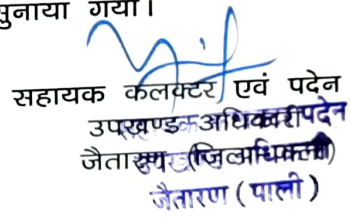 सुनाया गया।
सहायक कलक्टर एवं पदेन
उपखण्ड अधिकारी पदेन
जैतारण (जिला
जैतारण (पाली)